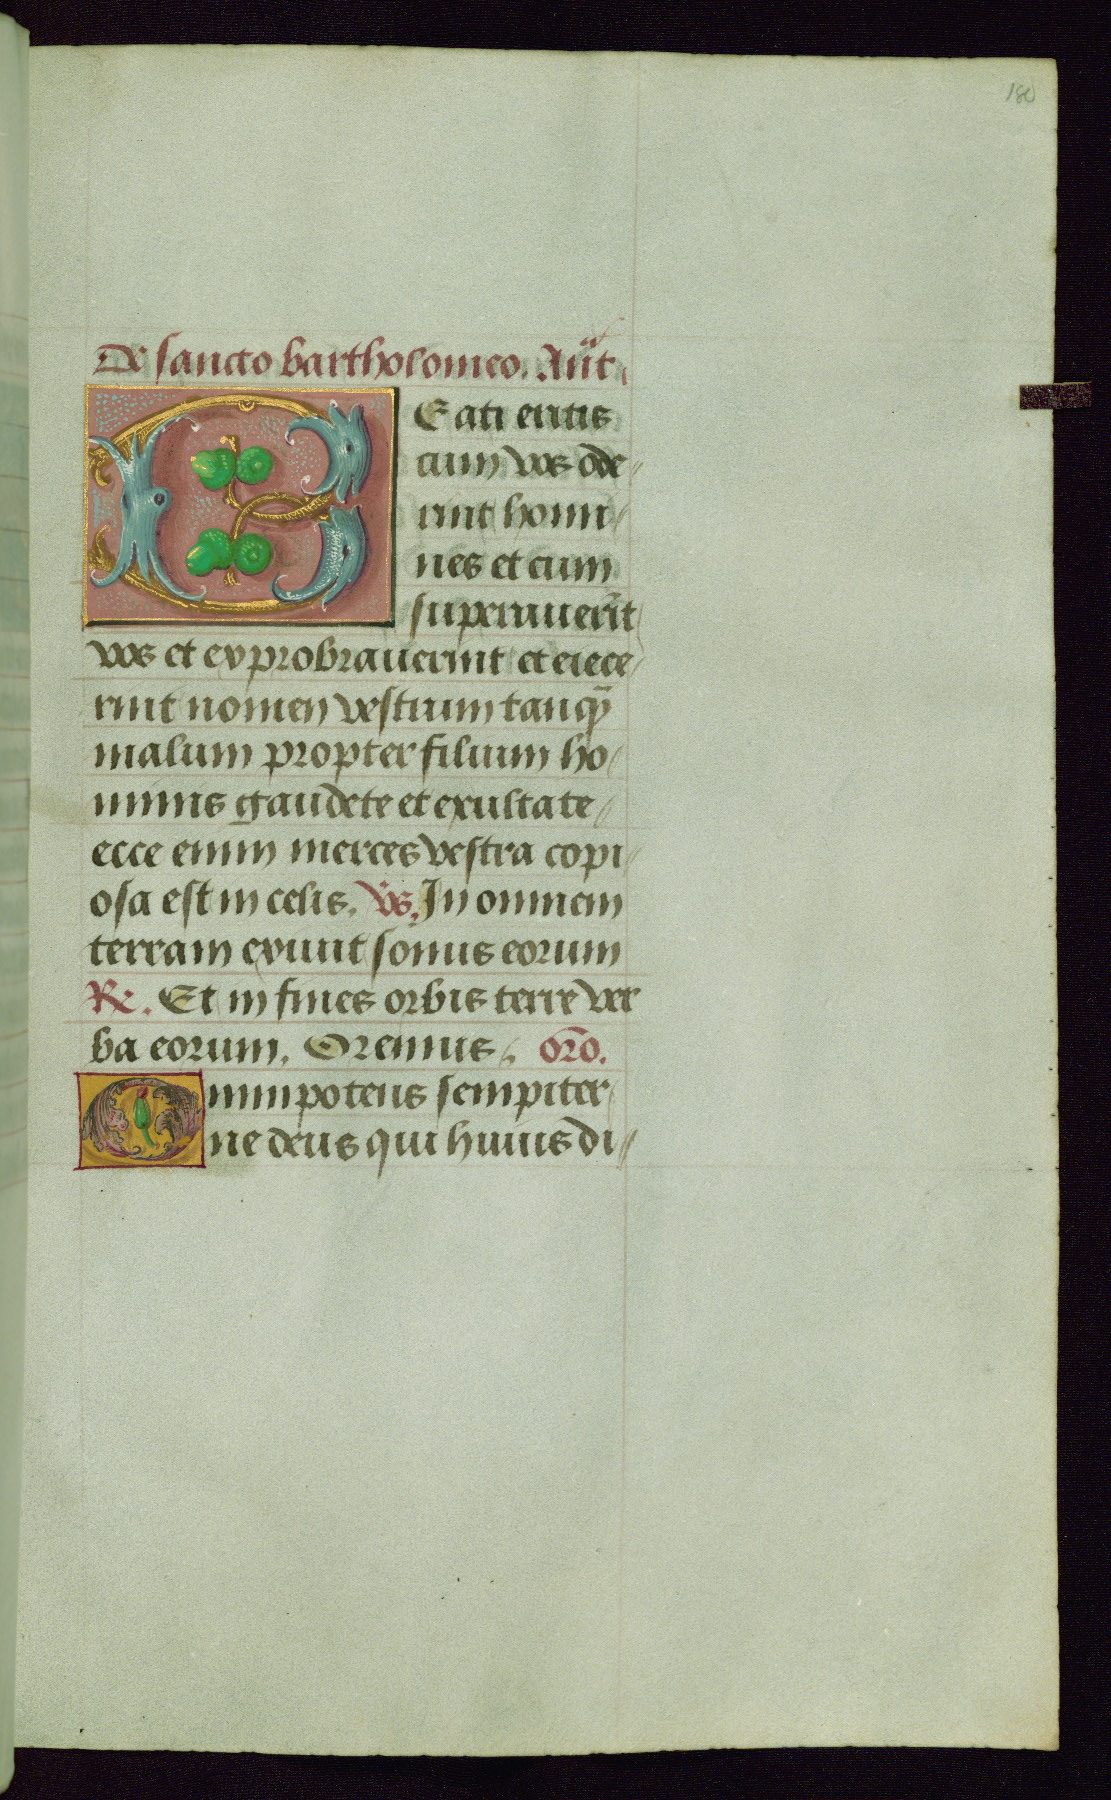 180
De sancto bartholomeo. Añt
BEati eritis
cum vos ode
rint homi
nes et cum
seperauerīt
vos et exprobrauerint et eiece
rint nomen vestrum tanq̄
malum propter filium ho
minis gaudete et exultate
ecce enim merces vestra copi
osa est in celis. Vs. In omnem
terram exiuit sonus eorum
Re. Et in fines orbis terre ver
ba eorum. Oremus. oro.
Omnipotens sempiter
ne deus qui huius di